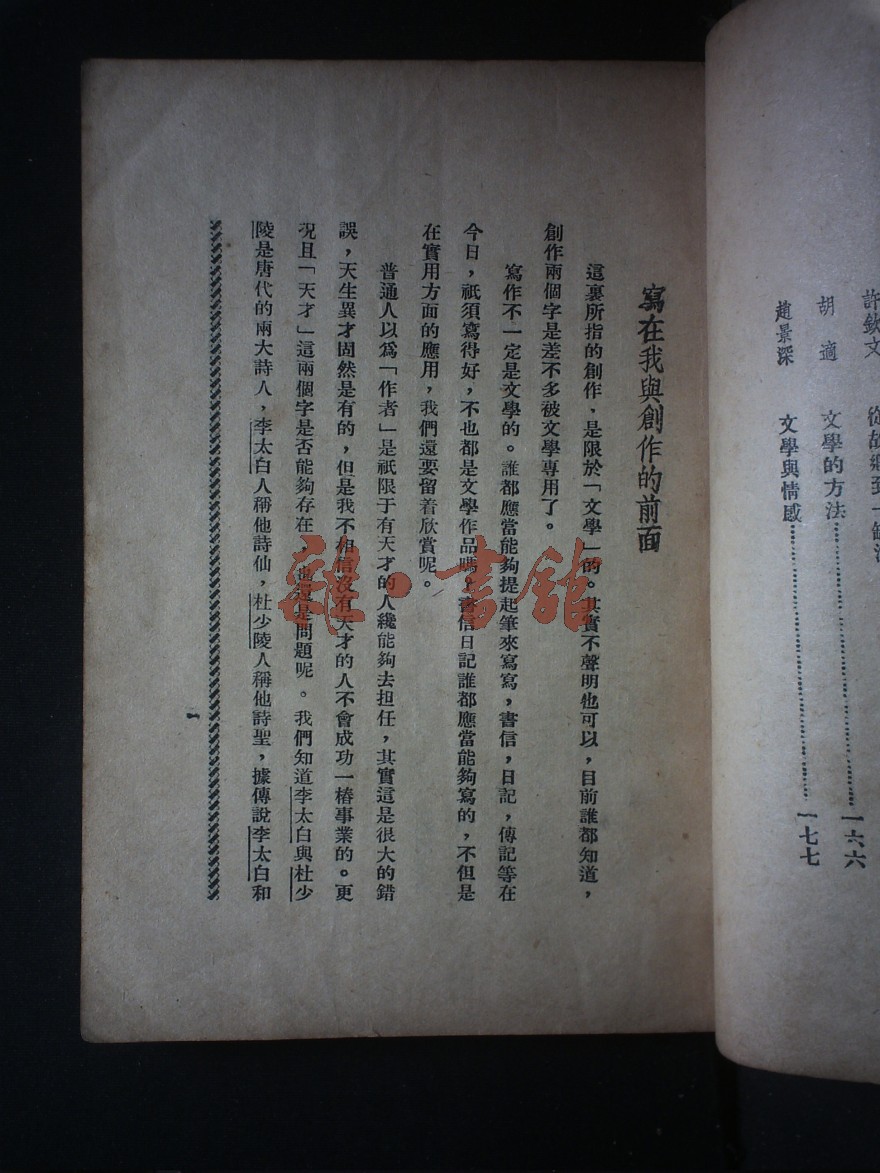 許欽文 從故鄉到一罎酒
胡適 文學的方法……………………一六六
趙景深 文學與情感……………………一七七
寫在我與創作的前面
這裏所指的創作,是限於「文學」的。其實不聲明也可以,目前誰都知道,
創作兩個字是差不多被文學專用了。
寫作不一定是文學的。誰都應當能夠提起筆來寫寫,書信,日記,傳記等在
今日,祇須寫得好,不也都是文學作品嗎?書信日記誰都應當能夠寫的,不但是
在實用方面的應用,我們還要留着欣賞呢。
普通人以爲「作者」是祇限于有天才的人纔能夠去担任,其實這是很大的錯
誤,天生異才固然是有的,但是我不相信沒有天才的人不會成功一樁事業的。更
況且「天才」這兩個字是否能夠存在,也還是問題呢。我們知道李太白與杜少
陵是唐代的兩大詩人,李太白人稱他詩仙,杜少陵人稱他詩聖,據傳說李太白和
一
雜·書館